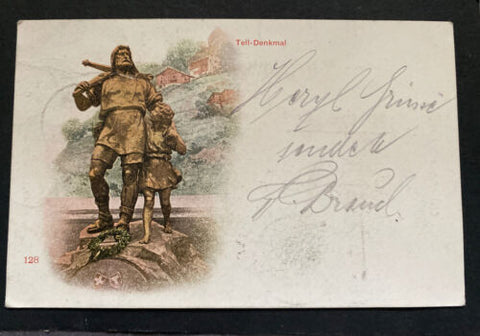 Tell-Denkmal
Herzl Grüsse
sendet
Braud
128